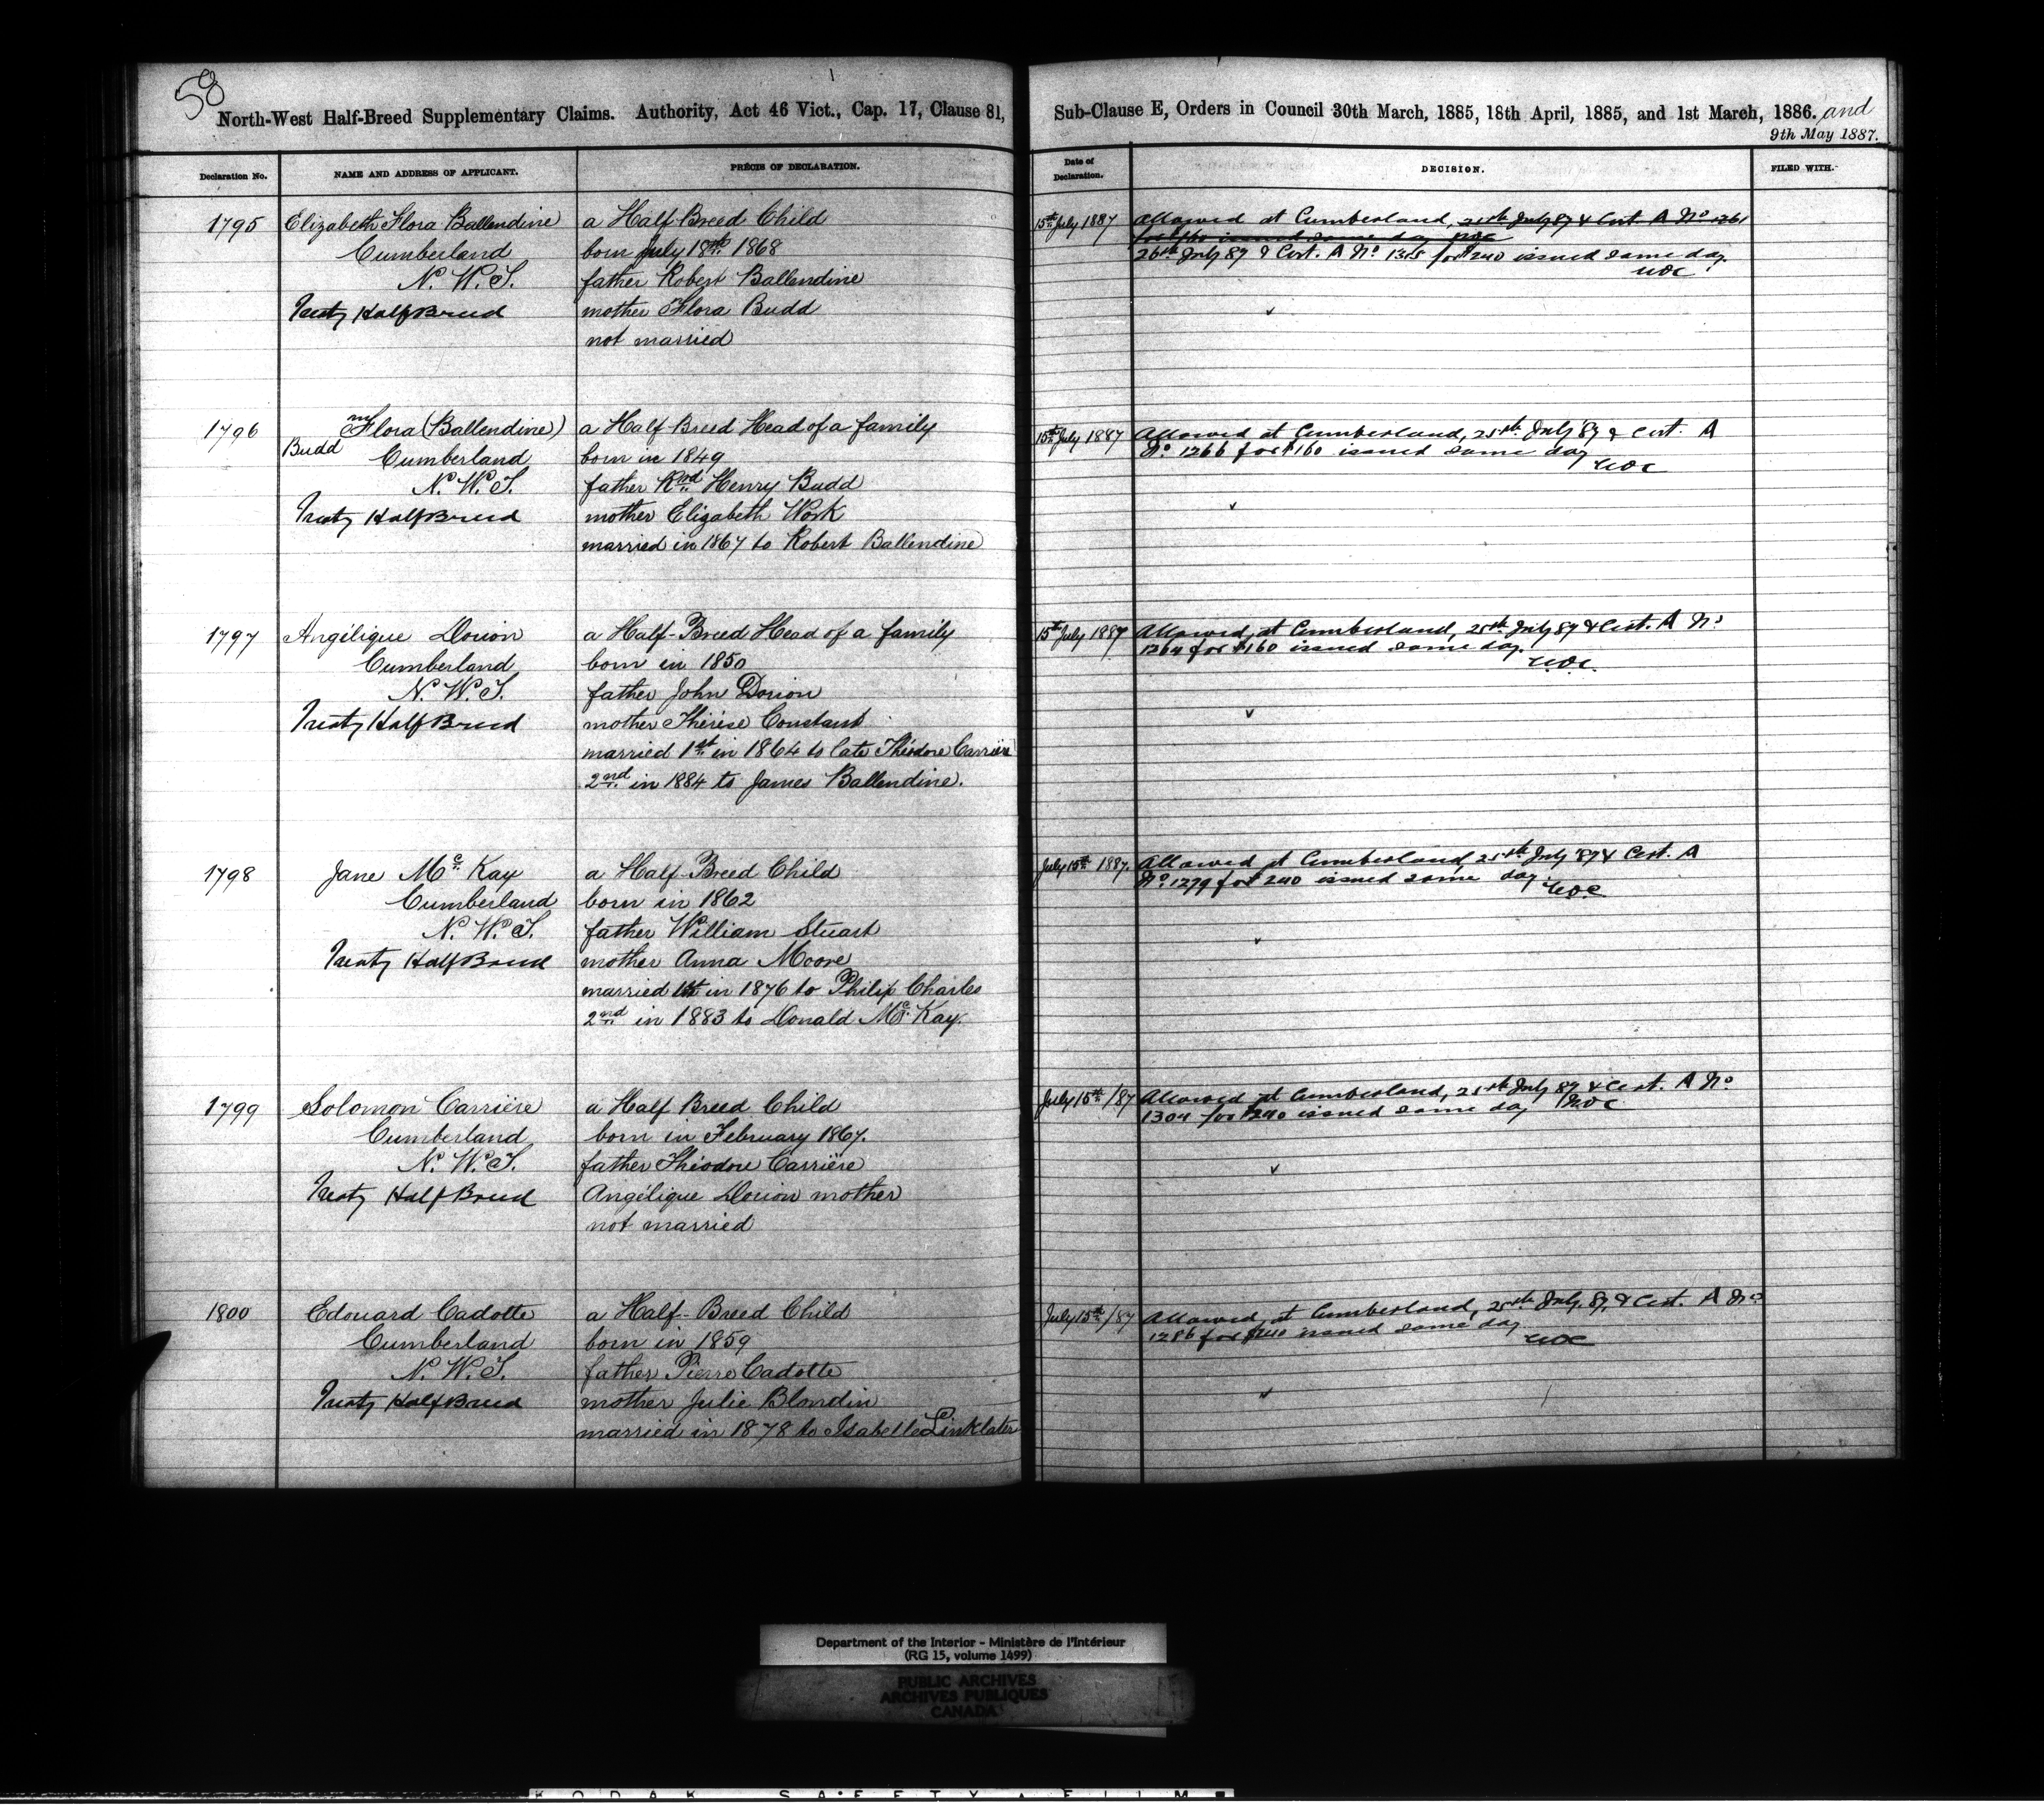 58
North-West Half-Breed Supplementary Claims. Authority, Act 46 Vict., Cap. 17, Clause 81,
Declaration No.
NAME AND ADDRESS OF APPLICANT.
PRÉCIS OF DECLARATION.
1795
Elizabeth Flora Ballendine
Cumberland
N. W. T.
Treaty Half Breed
a Half-Breed Child
born July 18th 1868
father Robert Ballendine
mother Flora Budd
not married
1796
Flora (Ballendine)
Budd
Cumberland
N. W. T.
Treaty Half Breed
a Half Breed Head of a family
born in 1849
father Rvd Henry Budd
mother Elizabeth Work
married in 1867 to Robert Ballendine
1797
Angélique Dorion
Cumberland
N. W. T.
Treaty Half Breed
a Half-Breed Head of a family
born in 1850
father John Dorion
mother Thérèse Constant
married 1st in 1864 to late Théodore Carrière
2nd in 1884 to James Ballendine.
1798
Jane Mc Kay
Cumberland
N. W. T.
Treaty Half Breed
a Half-Breed Child
born in 1862
father William Stuart
mother Anna Moore
married 1st in 1876 to Philip Charles
2nd in 1883 to Donald Mc Kay.
1799
Solomon Carrière
Cumberland
N. W. T.
Treaty Half Breed
a Half Breed Child
born in February 1867.
father Théodore Carrière
Angélique Dorion mother
not married
1800
Edouard Cadotte
Cumberland
N. W. T.
Treaty Half Breed
a Half-Breed Child
born in 1859
father Pierre Cadotte
mother Julie Blondin
married in 1878 to Isabelle Linklater
Sub-Clause E, Orders in Council 30th March, 1885, 18th April, 1885, and 1st March, 1886. and
9th May 1887.
Date of
Declaration.
DECISION.
FILED WITH.
15th July 1887
Allowed at Cumberland, 25th July 87 & Cert. A No 1261
for $160 issued same day
26th July 87 & Cert. A No for $240 issued same day.
15th July 1887
Allowed at Cumberland, 25th July 87 & Cert. A
No 1266 for $160 issued same day
15th July 1887
Allowed, at Cumberland, 25th July 87 & Cert. A No
1264 for $160 issued same day.
July 15th 1887.
Allowed at Cumberland, 25th July 87 & Cert. A
No 1279 for $240 issued same day.
July 15th /87
Allowed at Cumberland, 25th July 87 & Cert. A No
1304 for $240 issued same day
July 15th /87
Allowed, at Cumberland, 25th July, 87, & Cert. A No
1286 for $240 issued same day
Department of the Interior - Ministère de l'Intérieur
(RG 15, volume 1499)
PUBLIC ARCHIVES
ARCHIVES PUBLIQUES
CANADA
KODAK SAFETY FILM